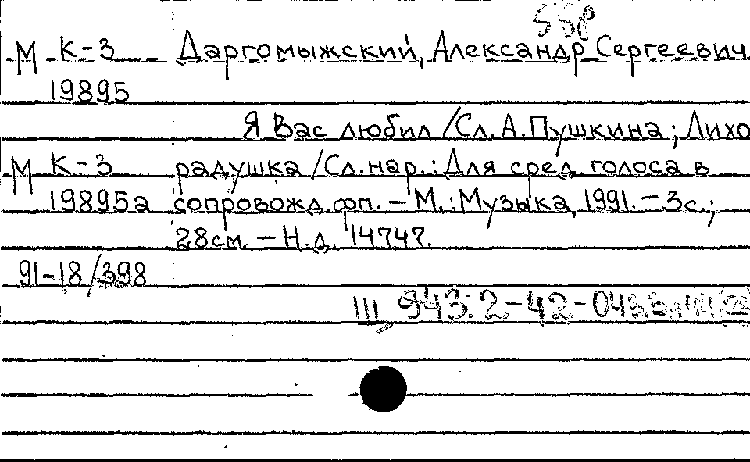 М К-3 Даргомыжский, Александр Сергеевич
19895
Я Вас любил /Сл. А. Пушкина; Лихо
М К-3 радушка /Сл. нар.: Для сред. голоса в
19895а сопровожд. фп. – М.: Музыка, 1991. – 3с.;
28см. – Н.д. 14747.
91-18/398
III 943.2-42-04